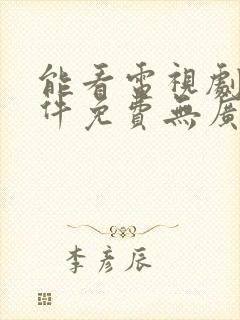 能看電視劇
件免費無廣
李彥辰